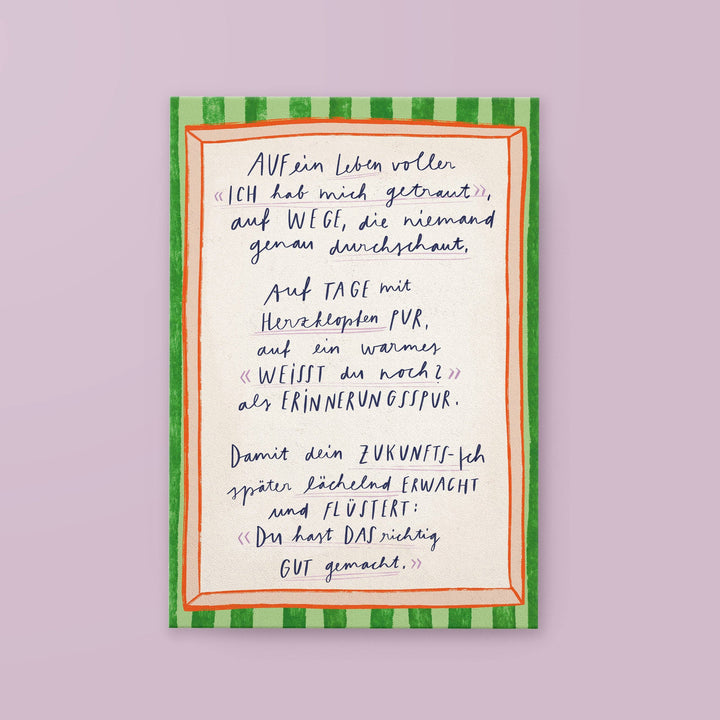 AUF ein Leben voller
«ICH hab mich getraut»,
auf WEGE, die niemand
genau durchschaut,
Auf TAGE mit
Herzklopfen PUR,
auf ein warmes
«WEISST du noch?»
als ERINNERUNGSSPUR.
Damit dein ZUKUNFTS-Ich
später lächelnd ERWACHT
und FLÜSTERT:
«Du hast DAS richtig
GUT gemacht.»